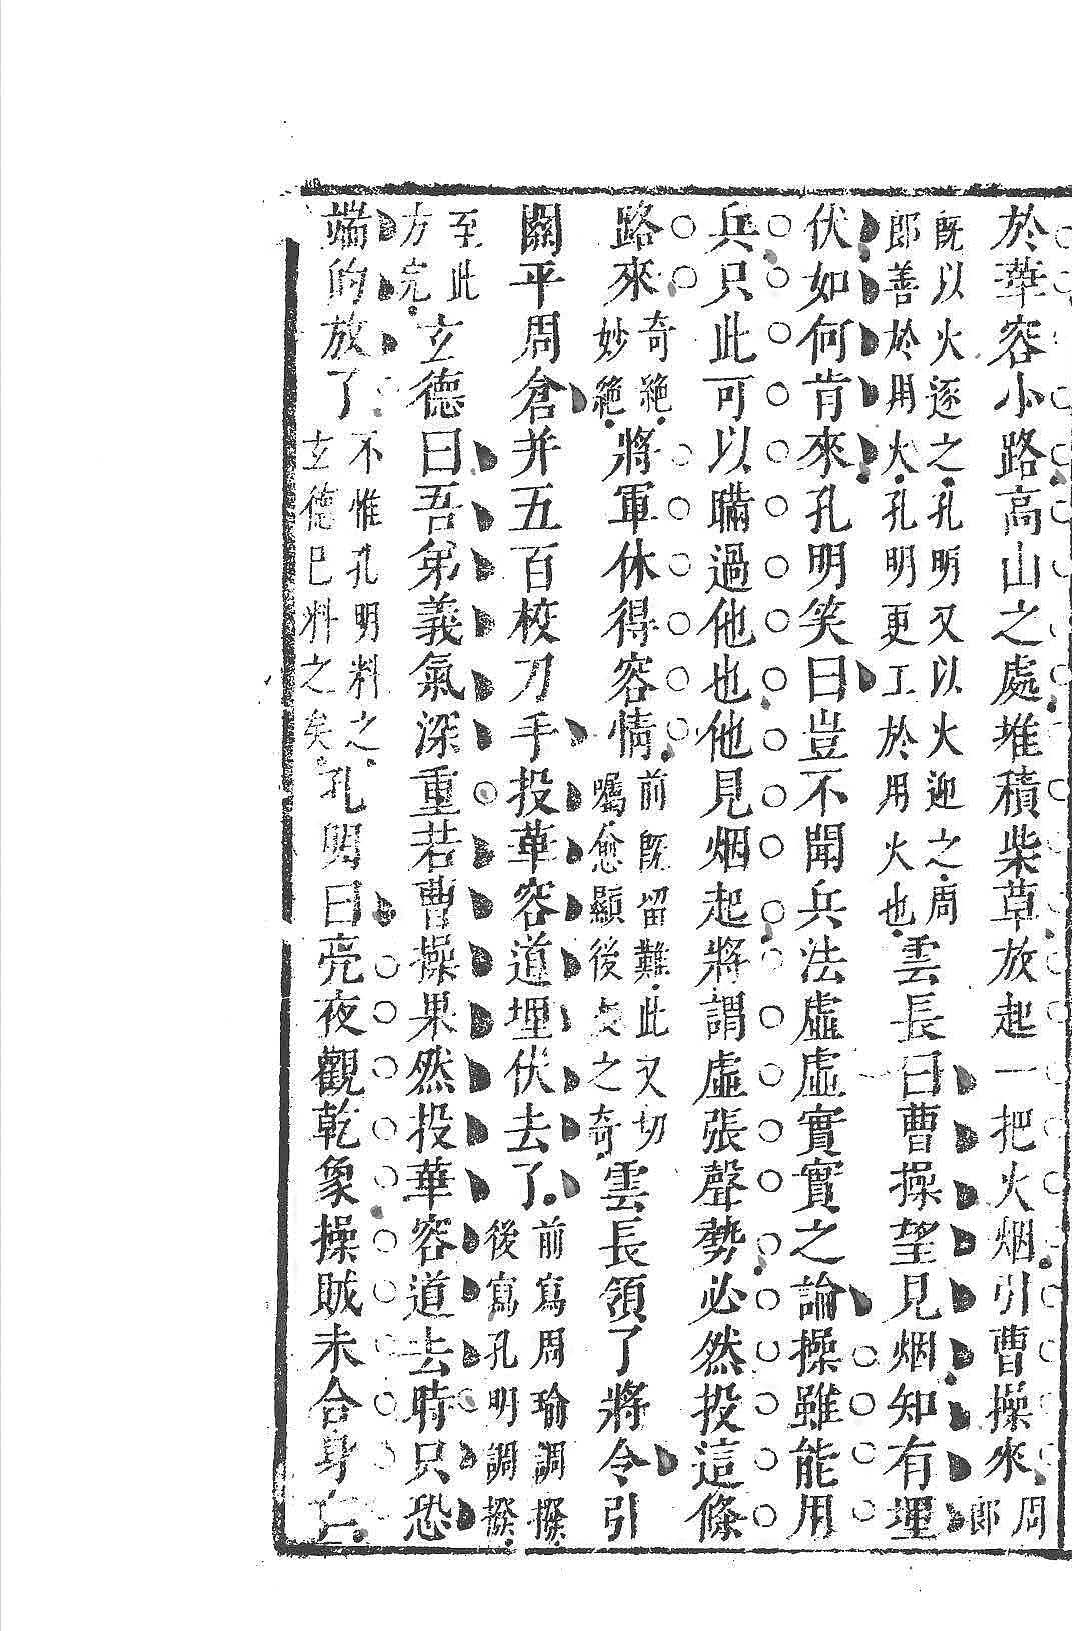 於華容小路高山之處堆積柴草放起一把火烟引曹操來周郎
既以火逐之孔明又以火迎之周郎善於用火孔明更工於用火也雲長曰曹操望見烟知有埋
伏如何肯來孔明笑曰豈不聞兵法虛虛實實之論操雖能用
兵只此可以瞞過他也他見烟起將謂虛張聲勢必然投這條
路來奇絶妙絶將軍休得容情前既留難此又切囑愈顯後文之奇雲長領了將令引
關平周倉并五百校刀手投華容道埋伏去了前寫周瑜調撥後寫孔明調撥
至此方完玄德曰吾弟義氣深重若曹操果然投華容道去時只恐
端的放了不惟孔明料之玄德已料之矣孔明曰亮夜觀乾象操賊未合身亡